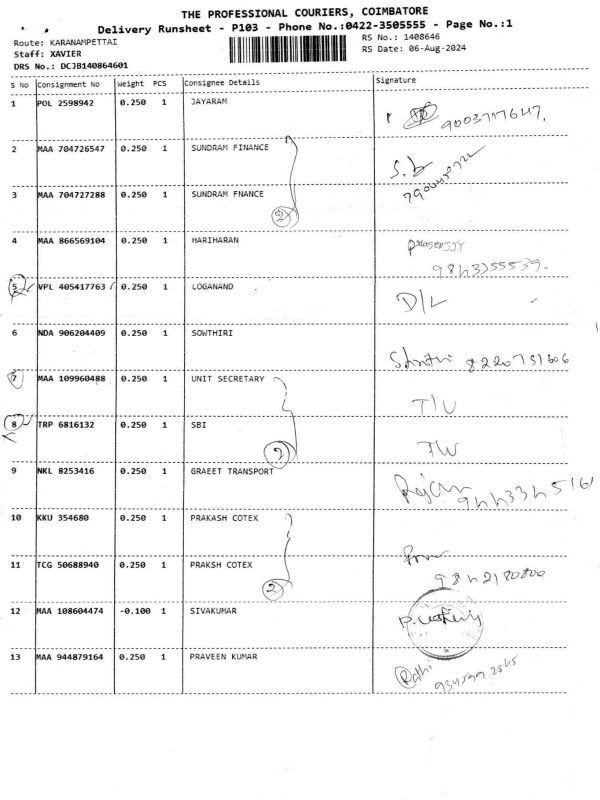 THE PROFESSIONAL COURIERS, COIMBATORE
Delivery Runsheet - P103 - Phone No.:0422-3505555 - Page No.:1
Route: KARANAMPETTAI RS No.: 1408646
Staff: XAVIER RS Date: 06-Aug-2024
DRS No.: DCJB140864601
S No Consignment No Weight PCS Consignee Details Signature
1 POL 2598942 0.250 1 JAYARAM
9003717647.
2 MAA 704726547 0.250 1 SUNDRAM FINANCE
S.b
3 MAA 704727288 0.250 1 SUNDRAM FNANCE
2
4 MAA 866569104 0.250 1 HARIHARAN
5 VPL 405417763 0.250 1 LOGANAND
D/L
6 NDA 906204409 0.250 1 SOWTHIRI
8220731606
7 MAA 109960488 0.250 1 UNIT SECRETARY
T/U
8 TRP 6816132 0.250 1 SBI
2
9 NKL 8253416 0.250 1 GRAEET TRANSPORT
10 KKU 354680 0.250 1 PRAKASH COTEX
11 TCG 50688940 0.250 1 PRAKSH COTEX
2
12 MAA 108604474 -0.100 1 SIVAKUMAR
13 MAA 944879164 0.250 1 PRAVEEN KUMAR